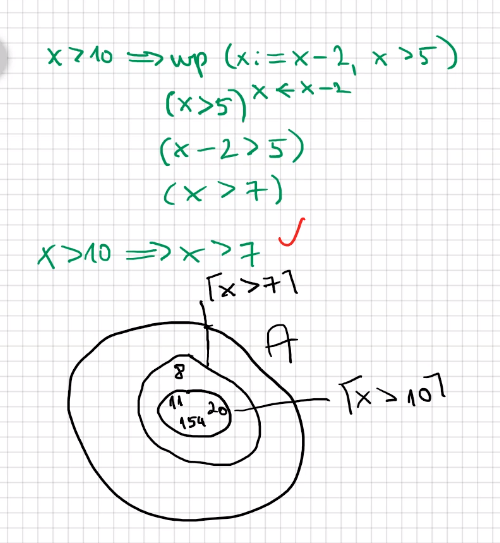 x > 10 ⟹ wp (x := x - 2, x > 5)
(x > 5) x ← x - 2
(x - 2 > 5)
(x > 7)
x > 10 ⟹ x > 7 ✓
⌈x > 7⌉
A
8
11 20
154
⌈x > 10⌉